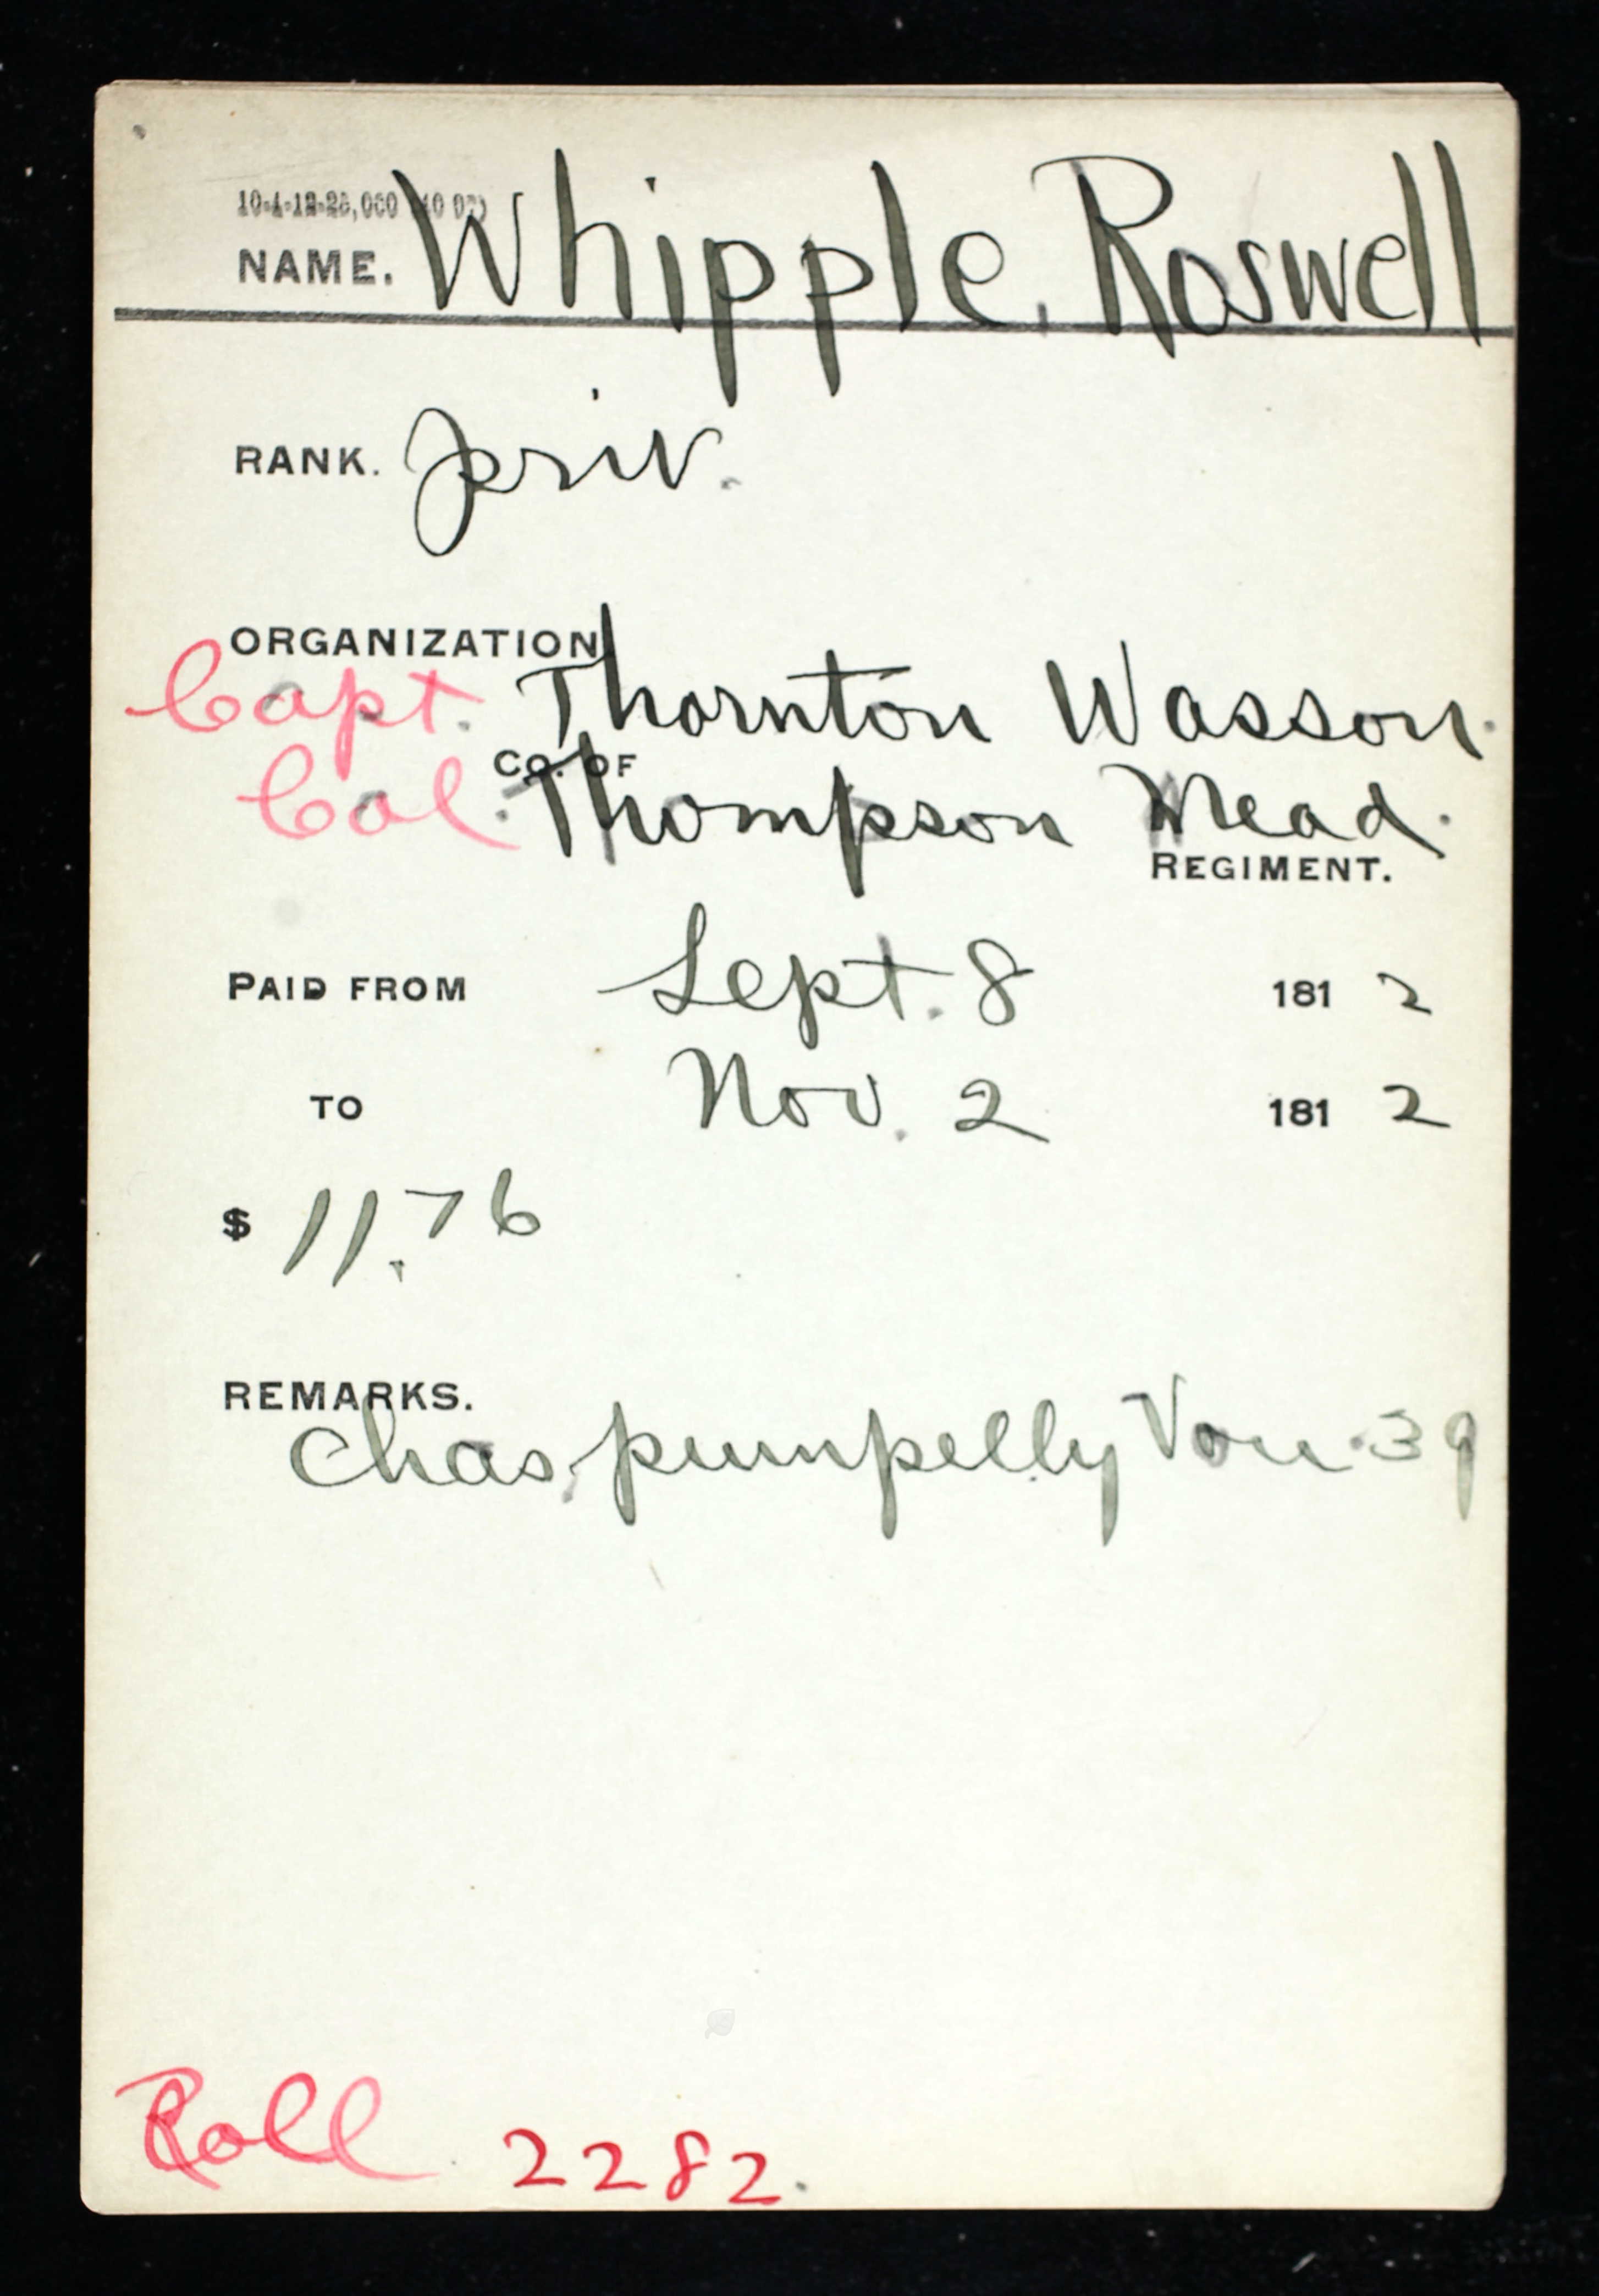 10-4-12-25,000 (40 07)
NAME. Whipple, Roswell
RANK. Priv.
ORGANIZATION
Capt. Thornton Wasson.
Co. OF
Col. Thompson Mead.
REGIMENT.
PAID FROM Sept. 8 1812
TO Nov. 2 1812
$ 11.76
REMARKS.
Chas. Pumpelly Vou. 39
Roll 2282.